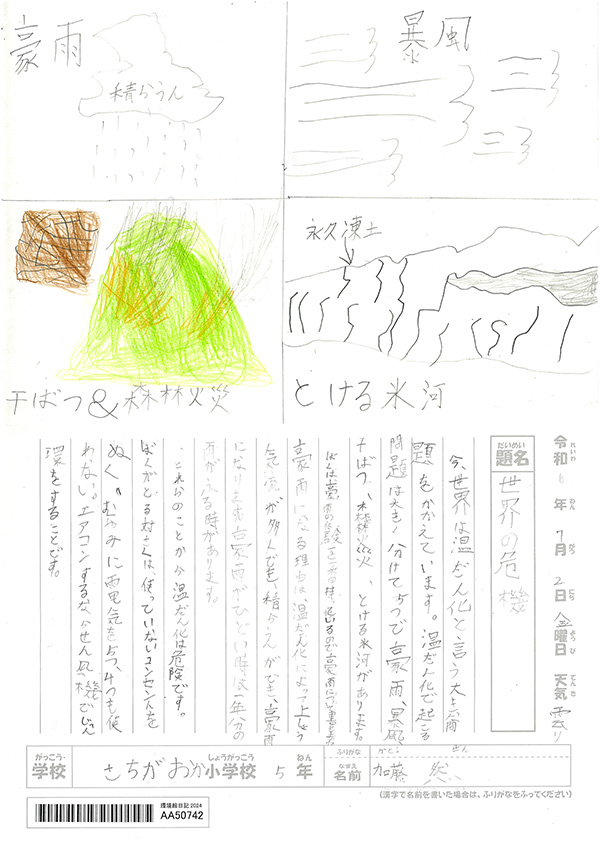 豪雨
積らうん
暴風
干ばつ&森林火災
永久凍土
とける氷河
令和6年7月2日金曜日 天気 雲り
れいわ ねん がつ にち ようび てんき
だいめい
題名 世界の危機
今、世界は温だん化と言う大きな問
題をかかえています。温だん化で起こる
問題は大きく分けて5つで豪雨、暴風
干ばつ、森林火災、とける氷河があります。
豪雨になる理由は、温だん化によって上しょう
気流が多くでき、積らうんができ、豪雨
になります。豪雨がひどい時は一年分の
雨がふる時があります。
これらのことから温だん化は危険です。
ぼくがとる対さくは使っていないコンセントを
ぬく。むやみに電気を5つ、4つも使
わない。エアコンするならせん風機でじゅん
環をすることです。
がっこう
学校 さちがおか小学校 5年
しょうがっこう ねん
ふりがな かとう ぜん
なまえ
名前 加藤 然
(漢字で名前を書いた場合は、ふりがなをふってください)
環境絵日記 2024
AA50742